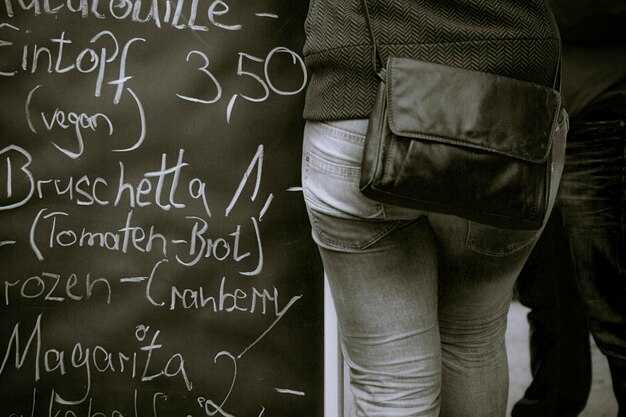 Ratatouille -
Eintopf 3,50
(vegan)
Bruschetta 1,-
(Tomaten-Brot)
rozen - Cranberry
Magarita 2,-